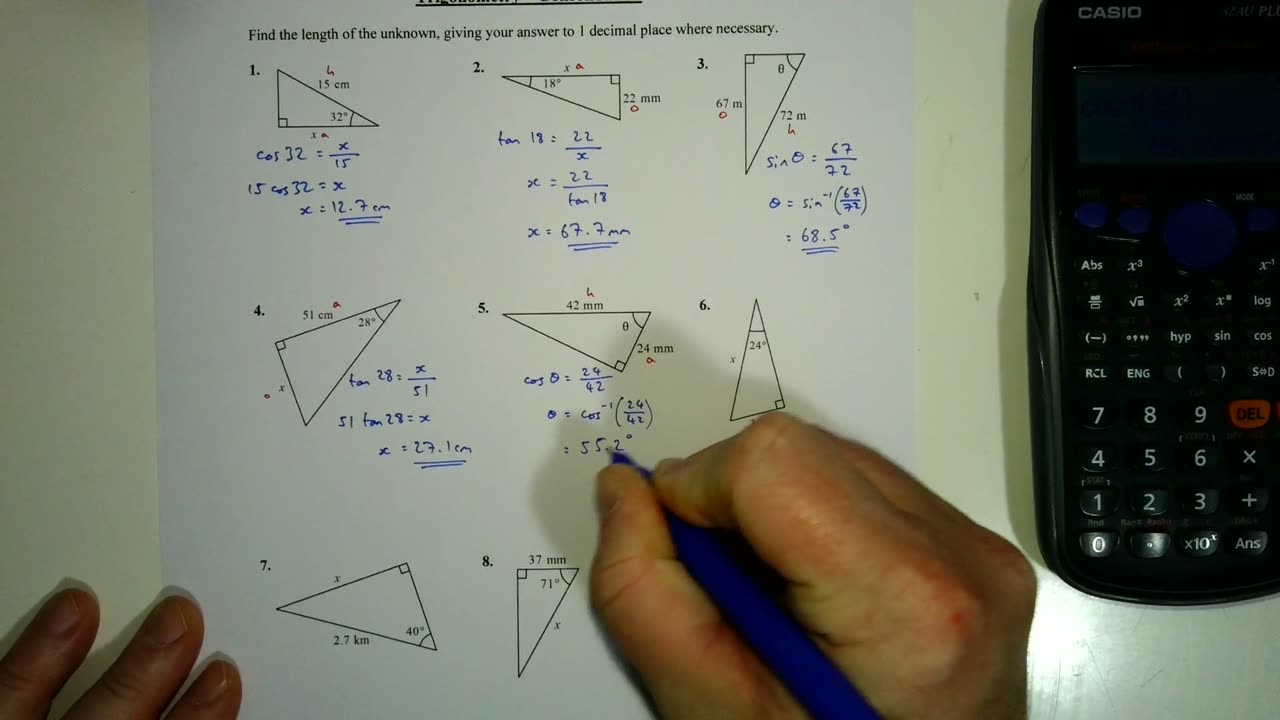 Find the length of the unknown, giving your answer to 1 decimal place where necessary.
1.
h
15 cm
32°
x a
cos 32 = x/15
15 cos 32 = x
x = 12.7 cm
2.
x a
18°
22 mm
o
tan 18 = 22/x
x = 22/tan 18
x = 67.7 mm
3.
θ
67 m
o
72 m
h
sin θ = 67/72
θ = sin⁻¹(67/72)
= 68.5°
4.
51 cm a
28°
o x
tan 28 = x/51
51 tan 28 = x
x = 27.1 cm
5.
h
42 mm
θ
24 mm
a
cos θ = 24/42
θ = cos⁻¹(24/42)
= 55.2°
6.
24°
x
7.
x
40°
2.7 km
8.
37 mm
71°
x
CASIO
MODE
Abs x³ x⁻¹
√ x² log
(−) hyp sin cos
RCL ENG ( ) S⇔D
7 8 9 DEL
4 5 6 ×
STAT
1 2 3 +
Rnd Ran#
0 . ×10ˣ Ans